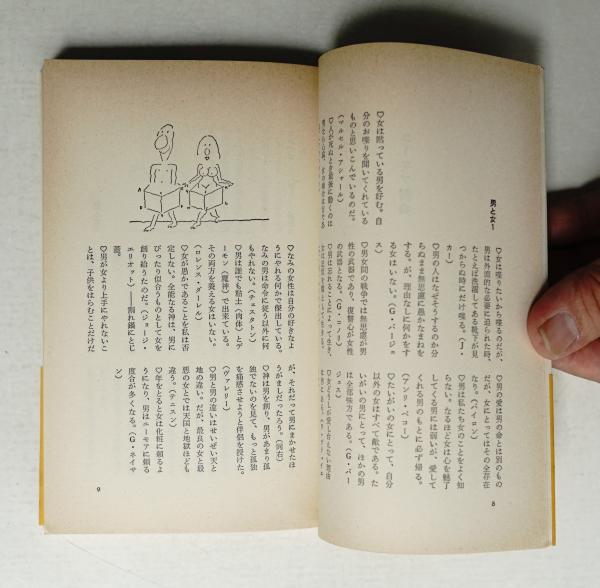 男と女1
♡女は黙っている男を好む。自
分のお喋りを聞いてくれている
ものと思いこんでいるのだ。
(マルセル・アシャール)
♡人が死ぬとき最後に動くのは
♡女は喋りたいから喋るのだが、
男は外面的な必要に迫られた時、
たとえば洗濯してある靴下が見
つからぬ時にだけ喋る。(J・
カー)
♡男の人はなぜそうするのか分
らぬまま無思慮に愚かなまねを
するが、理由なしに何かをす
る女はいない。(G・バージェ
ス)
♡男女間の戦争では無思慮が男
性の武器であり、復讐心が女性
の武器となる。(G・コノリ)
♡男は忘れることによって生き、
♡男の愛は男の命とは別のもの
だが、女にとってはその全存在
だ。(バイロン)
♡男は私たち女のことをよく知
らない。なるほど女は心を魅了
してくる男には弱いが、愛して
くれる男のもとに必ず帰る。
(アンリ・ベコー)
♡たいがいの女にとって、自分
以外の女はすべて敵である。た
いがいの男にとって、ほかの男
は全部味方である。(G・バー
ジェス)
♡女どうしが愛し合えない理由
8
♡なみの女性は自分の好きなよ
うにやれる何かで傑出している。
なみの男は命令に従う以外に何
もやれない。(チェスタトン)
♡男は誰でも粘土(肉体)とデ
ーモン(魔神)で出来ている。
その両方を養える女はいない。
(ロレンス・ダーレル)
♡女が愚かであることを私は否
定しない。全能なる神は、男に
ぴったり似合うものとして女を
創り給うたのだ。(ジョージ・
エリオット)——割れ鍋にとじ
蓋。
♡男が女より上手にやれないこ
とは、子供をはらむことだけだ
が、それだって男にまかせたほ
うがましだったろう。(同右)
♡神は男を創り、男があまり孤
独でないのを見て、もっと孤独
を痛感させようと伴侶を授けた。
(ヴァレリー)
♡男と男の違いはせいぜい天と
地の違い。だが、最良の女と最
悪の女とでは天国と地獄ほども
違う。(テニスン)
♡年をとると女は化粧に頼るよ
うになり、男はユーモアに頼る
度合が多くなる。(G・ネイサ
ン)
9